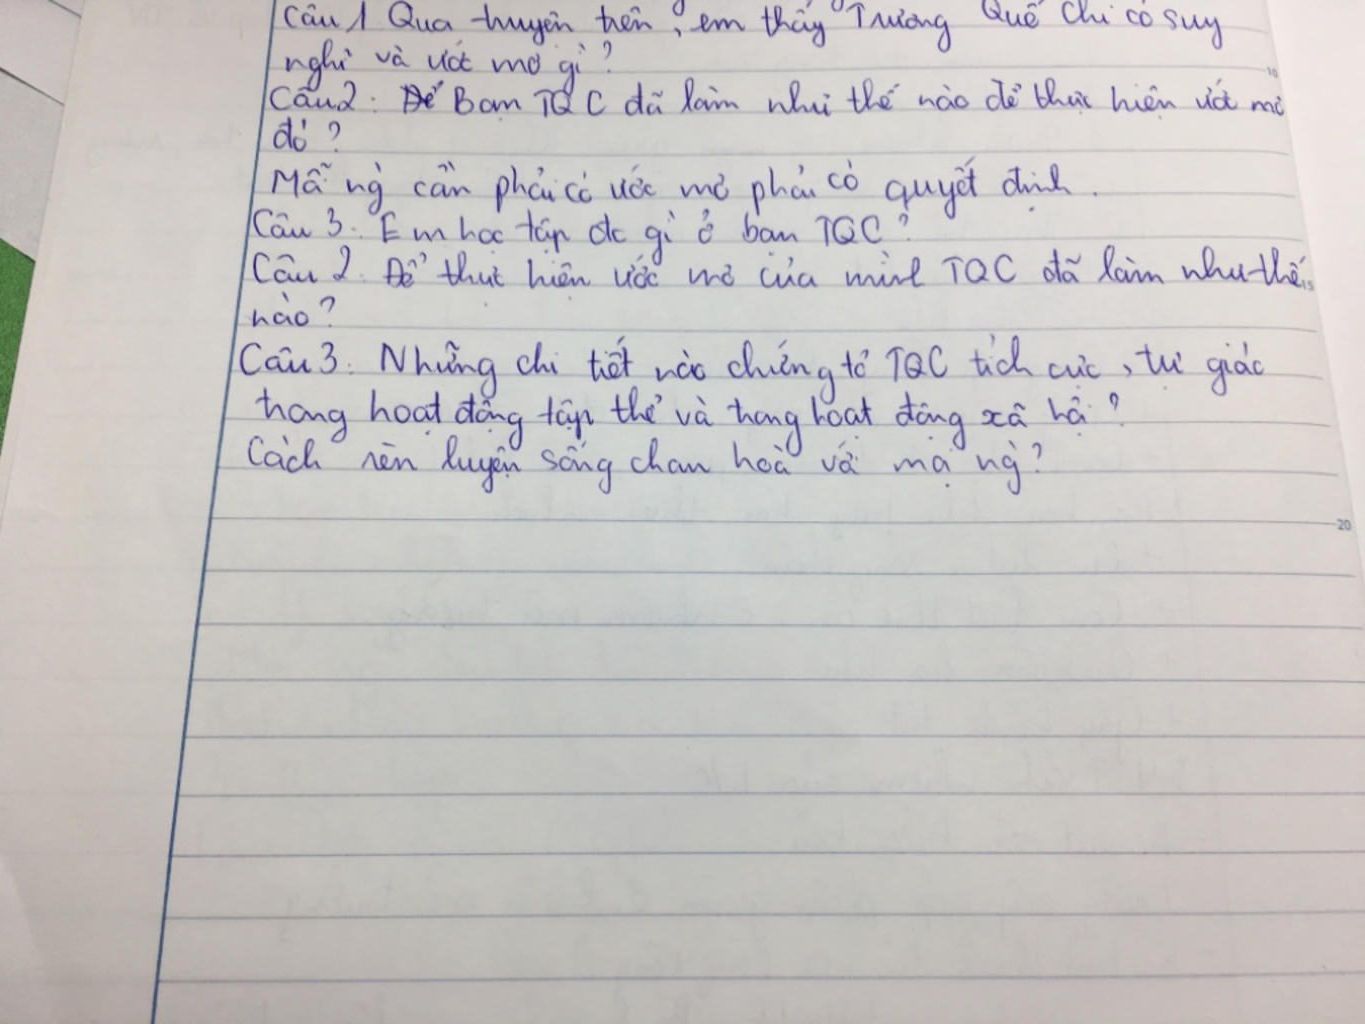 Câu 1 Qua truyện trên, em thấy Trương Quế Chi có suy
nghĩ và ước mơ gì?
Câu 2: Để Bạn TQC đã làm như thế nào để thực hiện ước mơ
đó?
Mỗi ng cần phải có ước mơ phải có quyết định.
Câu 3: Em học tập đc gì ở bạn TQC?
Câu 2: Để thực hiện ước mơ của mình TQC đã làm như thế
nào?
Câu 3: Những chi tiết nào chứng tỏ TQC tích cực, tự giác
trong hoạt động tập thể và trong hoạt động xã hội?
Cách rèn luyện sống chan hoà với mọi ng?
10
15
20